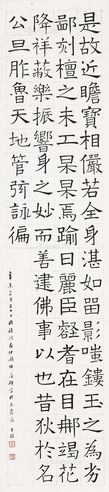 是故近瞻寶相儼若全身湛如留影嗤鏤玉之為劣
鄙刻檀之未工杲杲焉踰日麗巨壑耆在目那竭花
降祥蔽樂振響身之妙而善建佛事以曰昔狄於名
公旦胙魯天地管弦詠徧